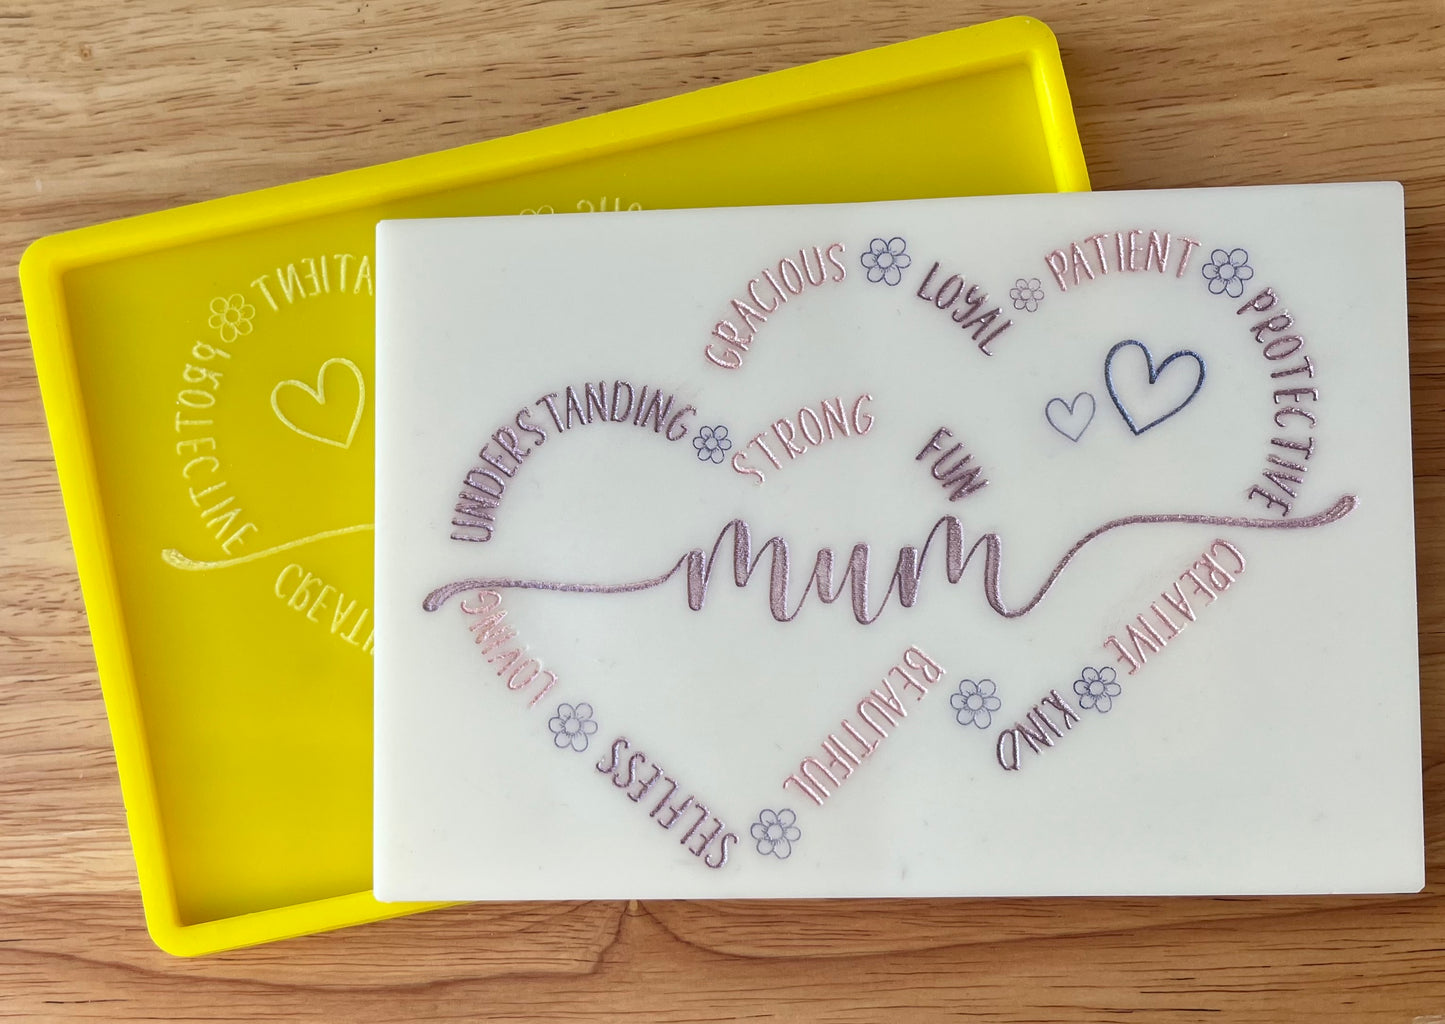 GRACIOUS
LOYAL
PATIENT
PROTECTIVE
UNDERSTANDING
STRONG
FUN
mum
LOVING
SELFLESS
BEAUTIFUL
KIND
CREATIVE
PATIENT
PROTECTIVE